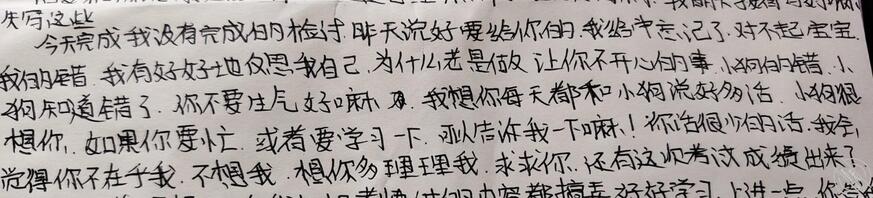 先写这些
今天完成我没有完成的检讨.昨天说好要给你的.我给忘记了.对不起宝宝.
我的错.我有好好地反思我自己.为什么老是做让你不开心的事.小狗的错.小
狗知道错了.你不要生气好嘛.我想你每天都和小狗说好多话.小狗很
想你.如果你要忙.或者要学习一下.可以告诉我一下嘛!你话很少的话.我会
觉得你不在乎我.不想我.想你多理理我.求求你.还有这次考试成绩出来了
都搞弄好好学习.上进一点.你